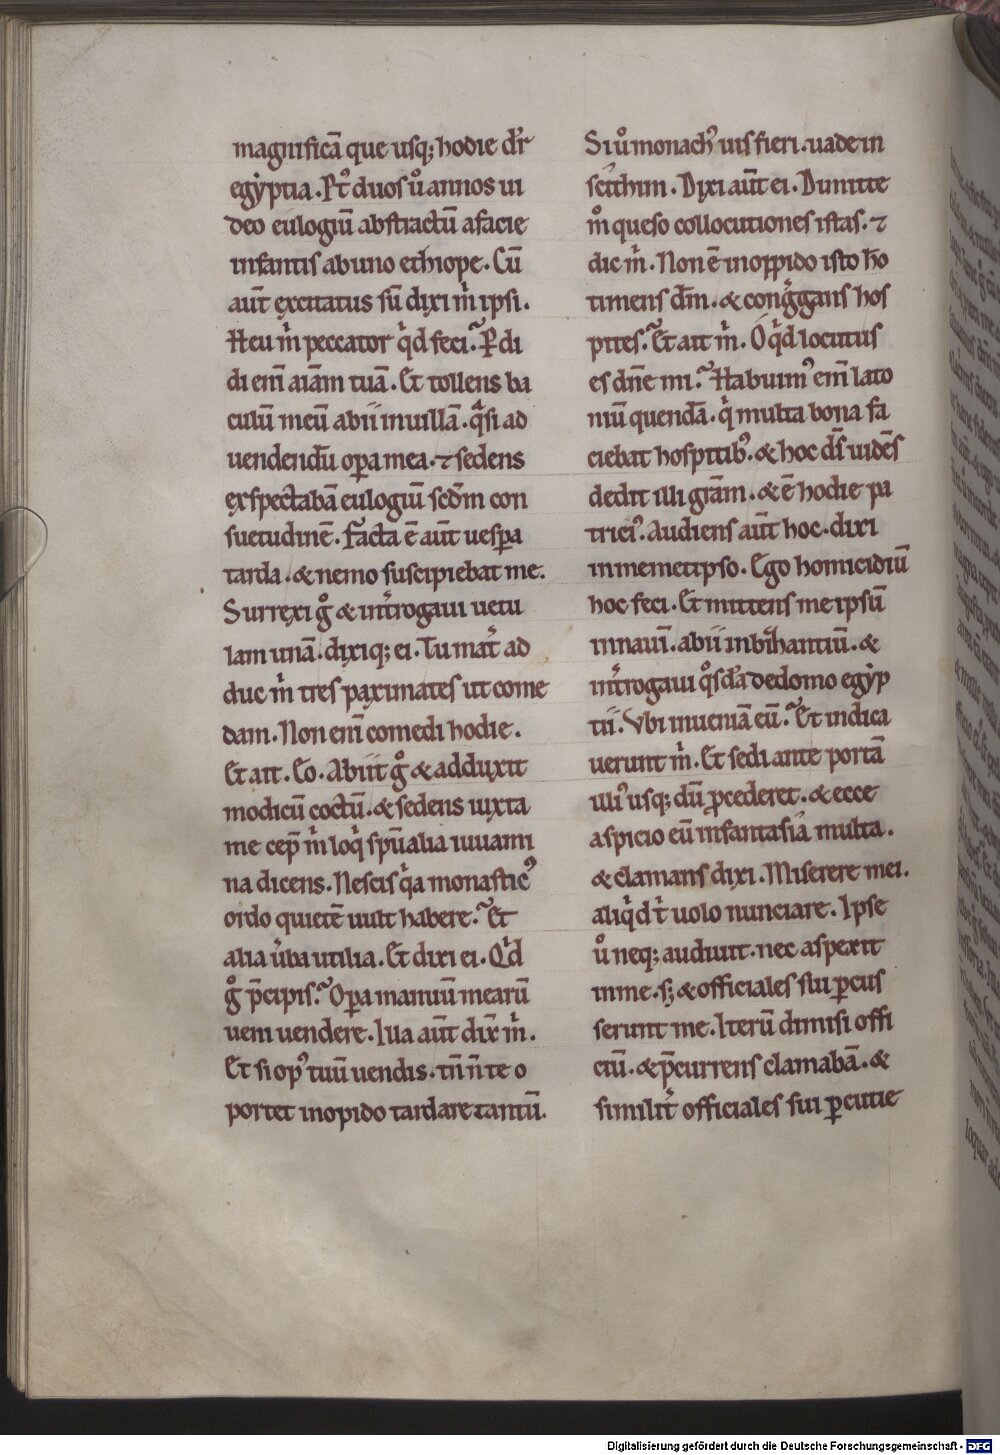 magnificā que usq; hodie dr̄
egyptia. Pt᷒ duos u̇o annos ui
deo eulogiū abstractū a facie
infantis ab uno ethiope. Cū
aūt excitatus sū dixi m̄ ipsi.
Heu m̄ peccator qd feci? Pdi
di em̄ aīam tuā. Et tollens ba
culū meū abii in uillā. qͣsi ad
uendendū opa mea. ⁊ sedens
exspectabā eulogiū scdm con
suetudinē. Facta ē aūt uespa
tarda. & nemo suscipiebat me.
Surrexi gͦ & int̄rogaui uetu
lam unā. dixiq; ei. Tu mat̄ ad
duc m̄ tres paximates ut come
dam. Non em̄ comedi hodie.
Et ait. Eo. Abiit gͦ & adduxit
modicū coctū. & sedens iuxta
me cep̄ m̄ loqͥ spūalia iuuami
na dicens. Nescis qͥa monasticꝰ
ordo quietē uult habere? Et
alia ūba utilia. Et dixi ei. Qͥd
gͦ p̄cipis? Opa manuū mearū
ueni uendere. Illa aūt dix̄ m̄.
Et si opꝰ tuū uendis. tn̄ n̄ te o
portet in opido tardare tantū.
Si uͦ monachꝰ uis fieri. uade in
scithim. Dixi aūt ei. Dimitte
mͦ queso collocutiones istas. ⁊
dic m̄. Non ē in oppido isto ho
timens dm̄. & cong̓gans hos
pites? Et ait m̄. O qͥd locutus
es dn̄e mi? Habuimꝰ em̄ lato
miū quendā. qͥ multa bona fa
ciebat hospitibꝰ. & hoc ds̄ uidēs
dedit illi gr̄am. & ē hodie pa
triciꝰ. Audiens aūt hoc. dixi
in memetipso. Ego homicidiū
hoc feci. Et mittens me ipsū
in nauī. abii in bihantiū. &
int̄rogaui qͦsdā de domo egyp
tii. Vbi inueniā eū? Et indica
uerunt m̄. Et sedi ante portā
illiꝰ usq; dū pcederet. & ecce
aspicio eū in fantasiā multa.
& clamans dixi. Miserere mei.
aliqͥd t̄ uolo nunciare. Ipse
uͦ neq; audiuit. nec aspexit
in me. s; & officiales sui pcus
serunt me. Iterū dimisi offi
ciū. & p̄currens clamabā. &
similit̄ officiales sui pcutie